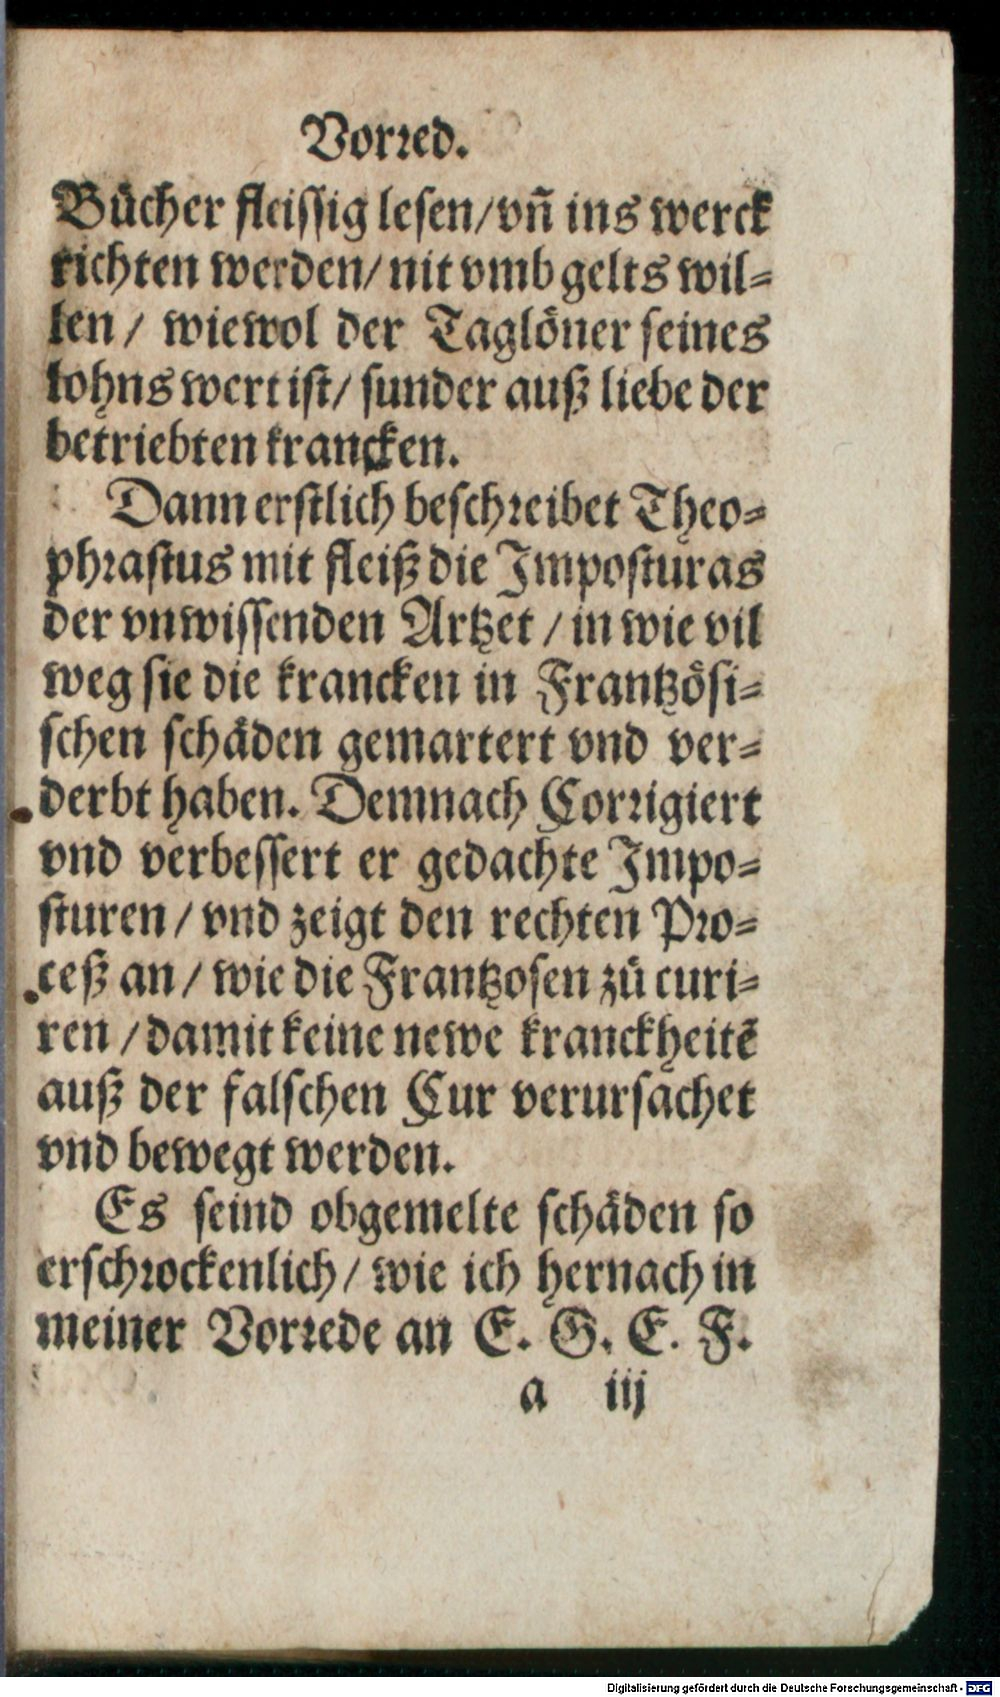 Vorred.
Bücher fleissig lesen/vñ ins werck
richten werden/ nit vmb gelts wil⸗
len/ wiewol der Taglöner seines
lohns wert ist/ sunder auß liebe der
betriebten krancken.
Dann erstlich beschreibet Theo⸗
phrastus mit fleiß die Imposturas
der vnwissenden Artzet / in wie vil
weg sie die krancken in Frantzösi⸗
schen schäden gemartert vnd ver⸗
derbt haben. Demnach Corrigiert
vnd verbessert er gedachte Impo⸗
sturen / vnd zeigt den rechten Pro⸗
ceß an / wie die Frantzosen zů curi⸗
ren / damit keine newe kranckheitē
auß der falschen Cur verursachet
vnd bewegt werden.
Es seind obgemelte schäden so
erschrockenlich/ wie ich hernach in
meiner Vorrede an E. G. E. F.
a iij
Digitalisierung gefördert durch die Deutsche Forschungsgemeinschaft - DFG